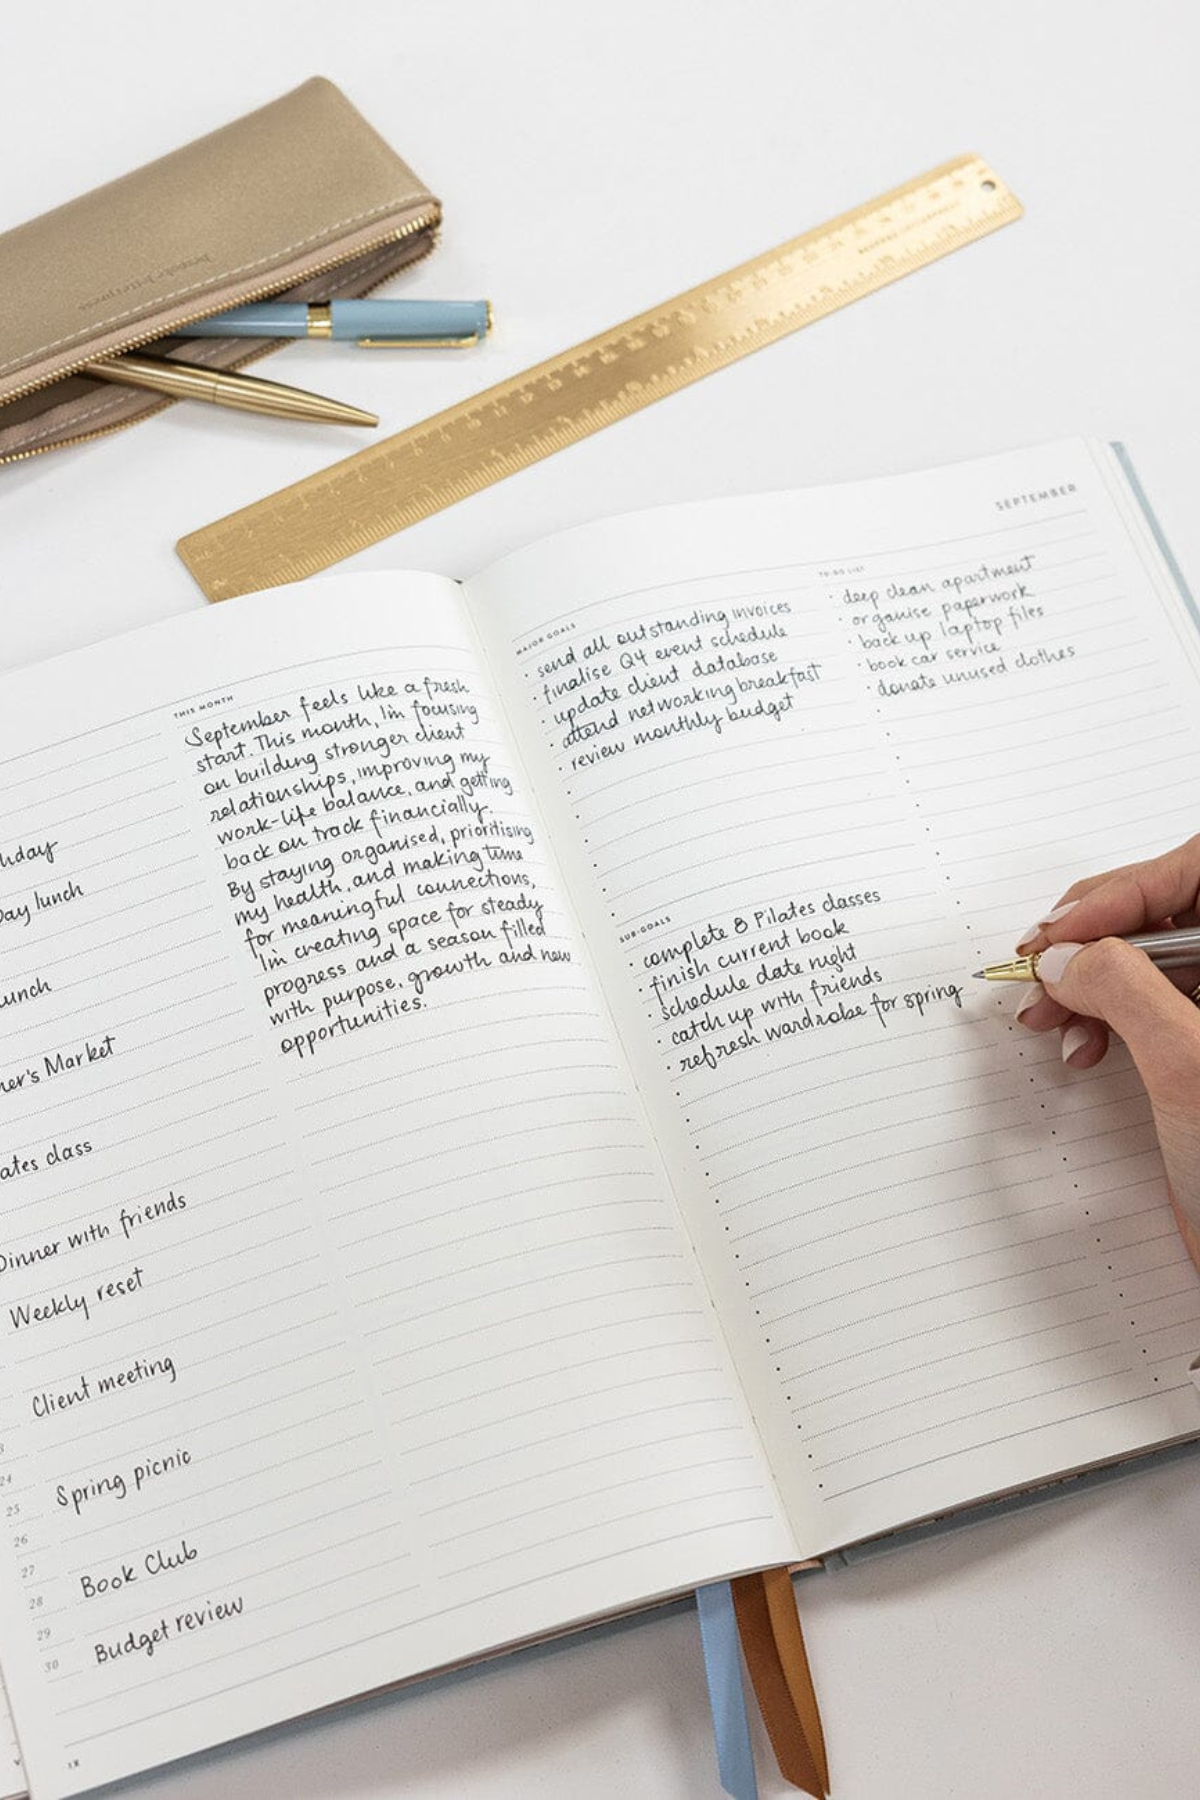 SEPTEMBER
THIS MONTH
September feels like a fresh
start. This month, I'm focusing
on building stronger client
relationships, improving my
work-life balance, and getting
back on track financially.
By staying organised, prioritising
my health, and making time
for meaningful connections,
I'm creating space for steady
progress and a season filled
with purpose, growth and new
opportunities.
Day lunch
Dinner with friends
Weekly reset
Client meeting
Spring picnic
Book Club
Budget review
24
25
26
27
28
29
30
MAJOR GOALS
· send all outstanding invoices
· finalise Q4 event schedule
· update client database
· attend networking breakfast
· review monthly budget
SUB-GOALS
· complete 8 Pilates classes
· finish current book
· schedule date night
· catch up with friends
· refresh wardrobe for spring
TO-DO LIST
· deep clean apartment
· organise paperwork
· back up laptop files
· book car service
· donate unused clothes